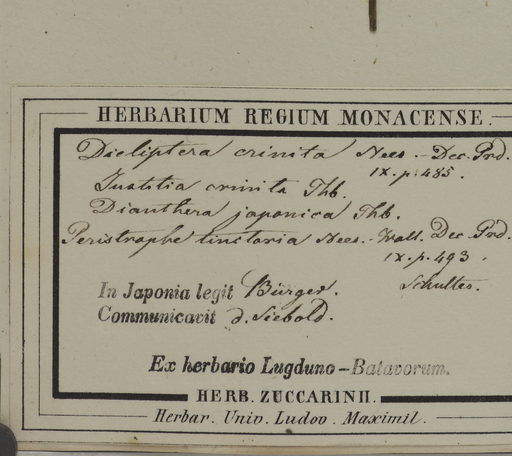 HERBARIUM REGIUM MONACENSE.
Dicliptera crinita Nees. - Dec. Prd.
IX. p. 485.
Justitia crinita Thb.
Dianthera japonica Thb.
Peristrophe tinctoria Nees. - Wall. Dec. Prd.
IX. p. 493.
Schultes.
In Japonia legit Bürger.
Communicavit d. Siebold.
Ex herbario Lugduno-Batavorum.
HERB. ZUCCARINII.
Herbar. Univ. Ludov. Maximil.